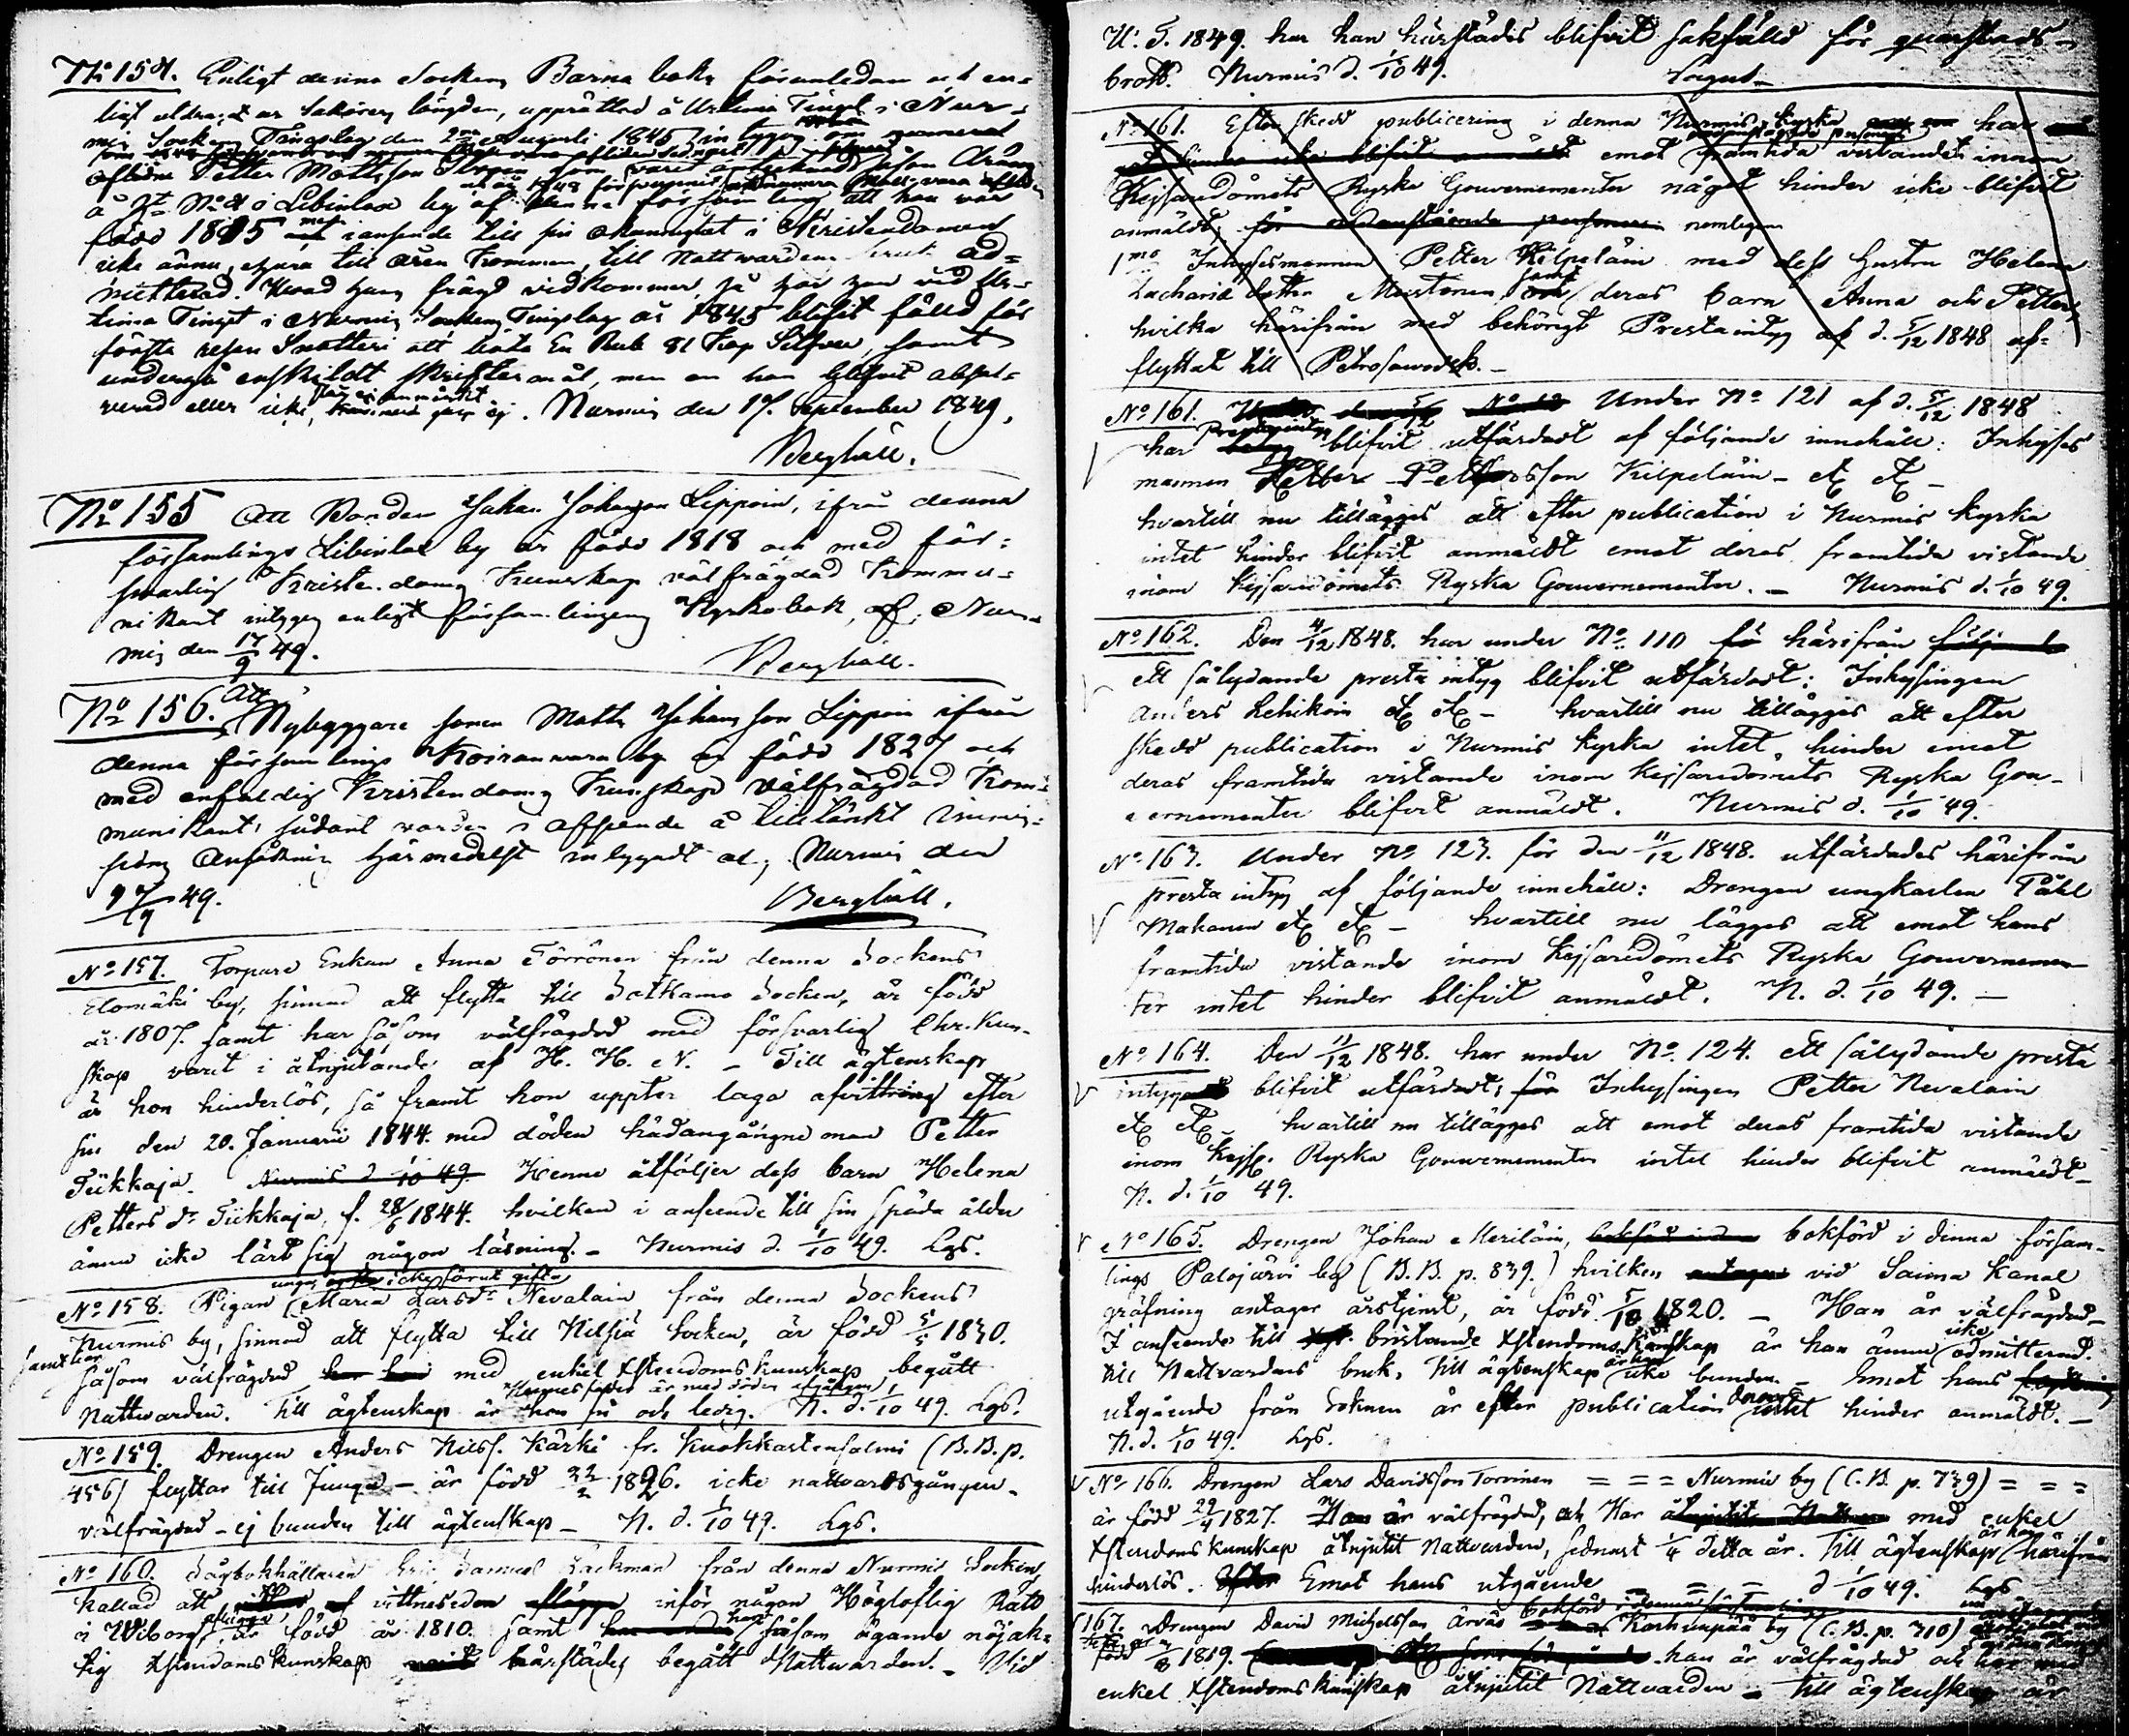 No 154. Enligt denna Sockens Barna boks föranledan och en-
ligt utdrag ur saköres längden, upprättad å Urtima Tinget i Nur-
mis Sockens Tingslag den 2dra Augusti 1845 intygas om
aflidne Petter Mattsson som varit
å No 4 i Libinlax by af denna församling att han var
född 1815 men i anseende till sin okunnighet i Kristendomen
icke ännu, ehuru till åren kommen, till Nattvardens bruk ad-
mitterad. Hvad hans frägd vidkommer, så har han vid Ur-
tima Tinget i Nurmis Sockens Tingslag år 1845 blifvit fälld för
första resan Snatteri att böta En Rub. 81 kop. Silfver, samt
undergå enskildt skriftermål, men om han blifvit absol-
verad eller icke, . Nurmis den 17. September 1849.
Berghäll.
No 155 Att Bonden Johan Johansson Lippoin, ifrån denna
församlings Libinlax by är född 1818 och med för-
svarlig Kristendoms Kunskap välfrägdad Kommu-
nikant intygas enligt församlingens Kyrkobok, af; Nur-
mis den 17/9 49.
Berghäll.
No 156. Att Nybyggare sonen Matts Johansson Lippoin ifrån
denna församlings Koiranvara by är född 1827 och
med enfaldig Kristendoms Kunskap välfrägdad Kom-
munikant, sådant varder i afseende å tilltänkt
Ansökning härmedelst intygadt af; Nurmis den
17/9 49.
Berghäll.
No 157. Torpare Enkan Anna Törrönen från denna Sockens
Elomäki by, sinnad att flytta till Sotkamo Socken, är född
år 1807. samt har såsom välfrägdad med försvarlig Chr. kun-
skap varit i åtnjutande af H. H. N. – Till ägtenskap
är hon hinderlös, så framt hon uppter laga afvittring efter
sin den 20. Januarii 1844. med döden hädangångne man Petter
Tükkaja. Nurmis d. 1/10 49. Henne åtföljer dess barn Helena
Petters dr Tiikkaja, f. 28/6 1844. hvilken i anseende till sin späda ålder
ännu icke lärt sig någon läsning. – Nurmis d. 1/10 49. Lgs.
unga, icke förut gifta
No 158. Pigan Maria Larsdr Nevalain från denna Sockens
Nurmis by, sinnad att flytta till Nilsiä Socken, är född 5/5 1830.
samt har såsom välfrägdad med enkel Xstendomskunskap begått
Hennes fader är med döden afgången
Nattvarden. Till ägtenskap är hon fri och ledig. N. d. 1/10 49. Lgs.
No 159. Drengen Anders Nilss. Kärki fr. Kuokkastensalmi (B.B. p.
456) flyttar till Junga – är född 22/2 1826. icke nattvardsgången.
välfrägdad – ej bunden till ägtenskap – N. d. 1/10 49. Lgs.
No 160. Sågbokhållaren Eric Samuel Lackman från denna Nurmis Socken,
kallad att vittneseden aflägga inför någon Högloflig Rätt
i Wiborg, är född år 1810. samt har såsom ägande nöjak-
tig Xstendomskunskap härstädes begått Nattvarden. – Vid
U. T. 1849. har han härstädes blifvit sakfälld för qvarstads-
brott. Nurmis d. 1/10 49.
No 161. Efter skedd publicering i denna Nurmis kyrka har
emot framtida vistandet innom
Kejsaredömets Ryska Gouvernementer något hinder icke blifvit
anmäldt, för nedanstående personer nemligen
1mo Inhysesmannen Petter Kilpeläin med dess hustru Helena
Zacharis dotter Mustonen, samt deras barn Anna och Petter,
hvilka härifrån med behörigt Prestaintyg af d. 5/12 1848 af-
flyttat till Petrosawodsk. –
No 161. Under No 121 af d. 5/12 1848
har Prestaintyg blifvit utfärdadt af följande innehåll: Inhyses
mannen Petter Pettersson Kilpeläin – etc etc –
hvartill nu tillägges att efter publication i Nurmis kyrka
intet hinder blifvit anmäldt emot deras framtida vistande
inom Kejsaredömets Ryska Gouvernementer. – Nurmis d. 1/10 49.
No 162. Den 4/12 1848. har under No 110 härifrån
ett sålydande presta intyg blifvit utfärdadt: Inhysingen
Anders Lehikoin etc etc – hvartill nu tillägges att efter
skedd publication i Nurmis kyrka intet hinder emot
deras framtida vistande inom Kejsaredömets Ryska Gou-
vernementer blifvit anmäldt. Nurmis d. 1/10 49.
No 163. Under No 123. för den 11/12 1848. utfärdades härifrån
presta intyg af följande innehåll: Drengen ungkarlen Påhl
Makonen etc etc – hvartill nu lägges att emot hans
framtida vistande inom Kejsaredömets Ryska Gouvernemen-
ter intet hinder blifvit anmäldt. N. d. 1/10 49. –
No 164. Den 11/12 1848. har under No 124. ett sålydande presta
intyg blifvit utfärdadt; Inhysingen Petter Nevalain
etc etc – hvartill nu tillägges att emot deras framtida vistande
inom Kejs. Ryska Gouvernementer intet hinder blifvit anmäldt –
N. d. 1/10 49.
No 165. Drengen Johan Meriläin, bokförd i denna försam-
lings Palojärvi by (B.B. p. 839.) hvilken vid Saima Kanal
gräfning antager årstjenst, är född 5/10 1820. – Han är välfrägdad –
I anseende till bristande Xstendoms kunskap är han ännu icke admitterad
till Nattvardens bruk, Till ägtenskap är han icke bunden. – Emot hans
utgående från Soknen är efter publication intet hinder anmäldt. –
N. d. 1/10 49. Lgs.
No 166. Drengen Lars Davidsson Torvinen = = = Nurmis by (C.B. p. 739) = = =
är född 29/4 1827. Han är välfrägdad, och Har med enkel
Xstendoms kunskap åtnjutit Nattvarden, sednast 1/4 detta år. Till ägtenskap är han härifrån
hinderlös. Emot hans utgående = = = d 1/10 49. Lgs
167. Drengen David Michelsson Ärväs bokförd i denna församlings Karhunpää by (C.B. p. 310)
född 7/8 1819. han är välfrägdad och har med
enkel Xstendoms kunskap åtnjutit Nattvarden – Till ägtenskap är